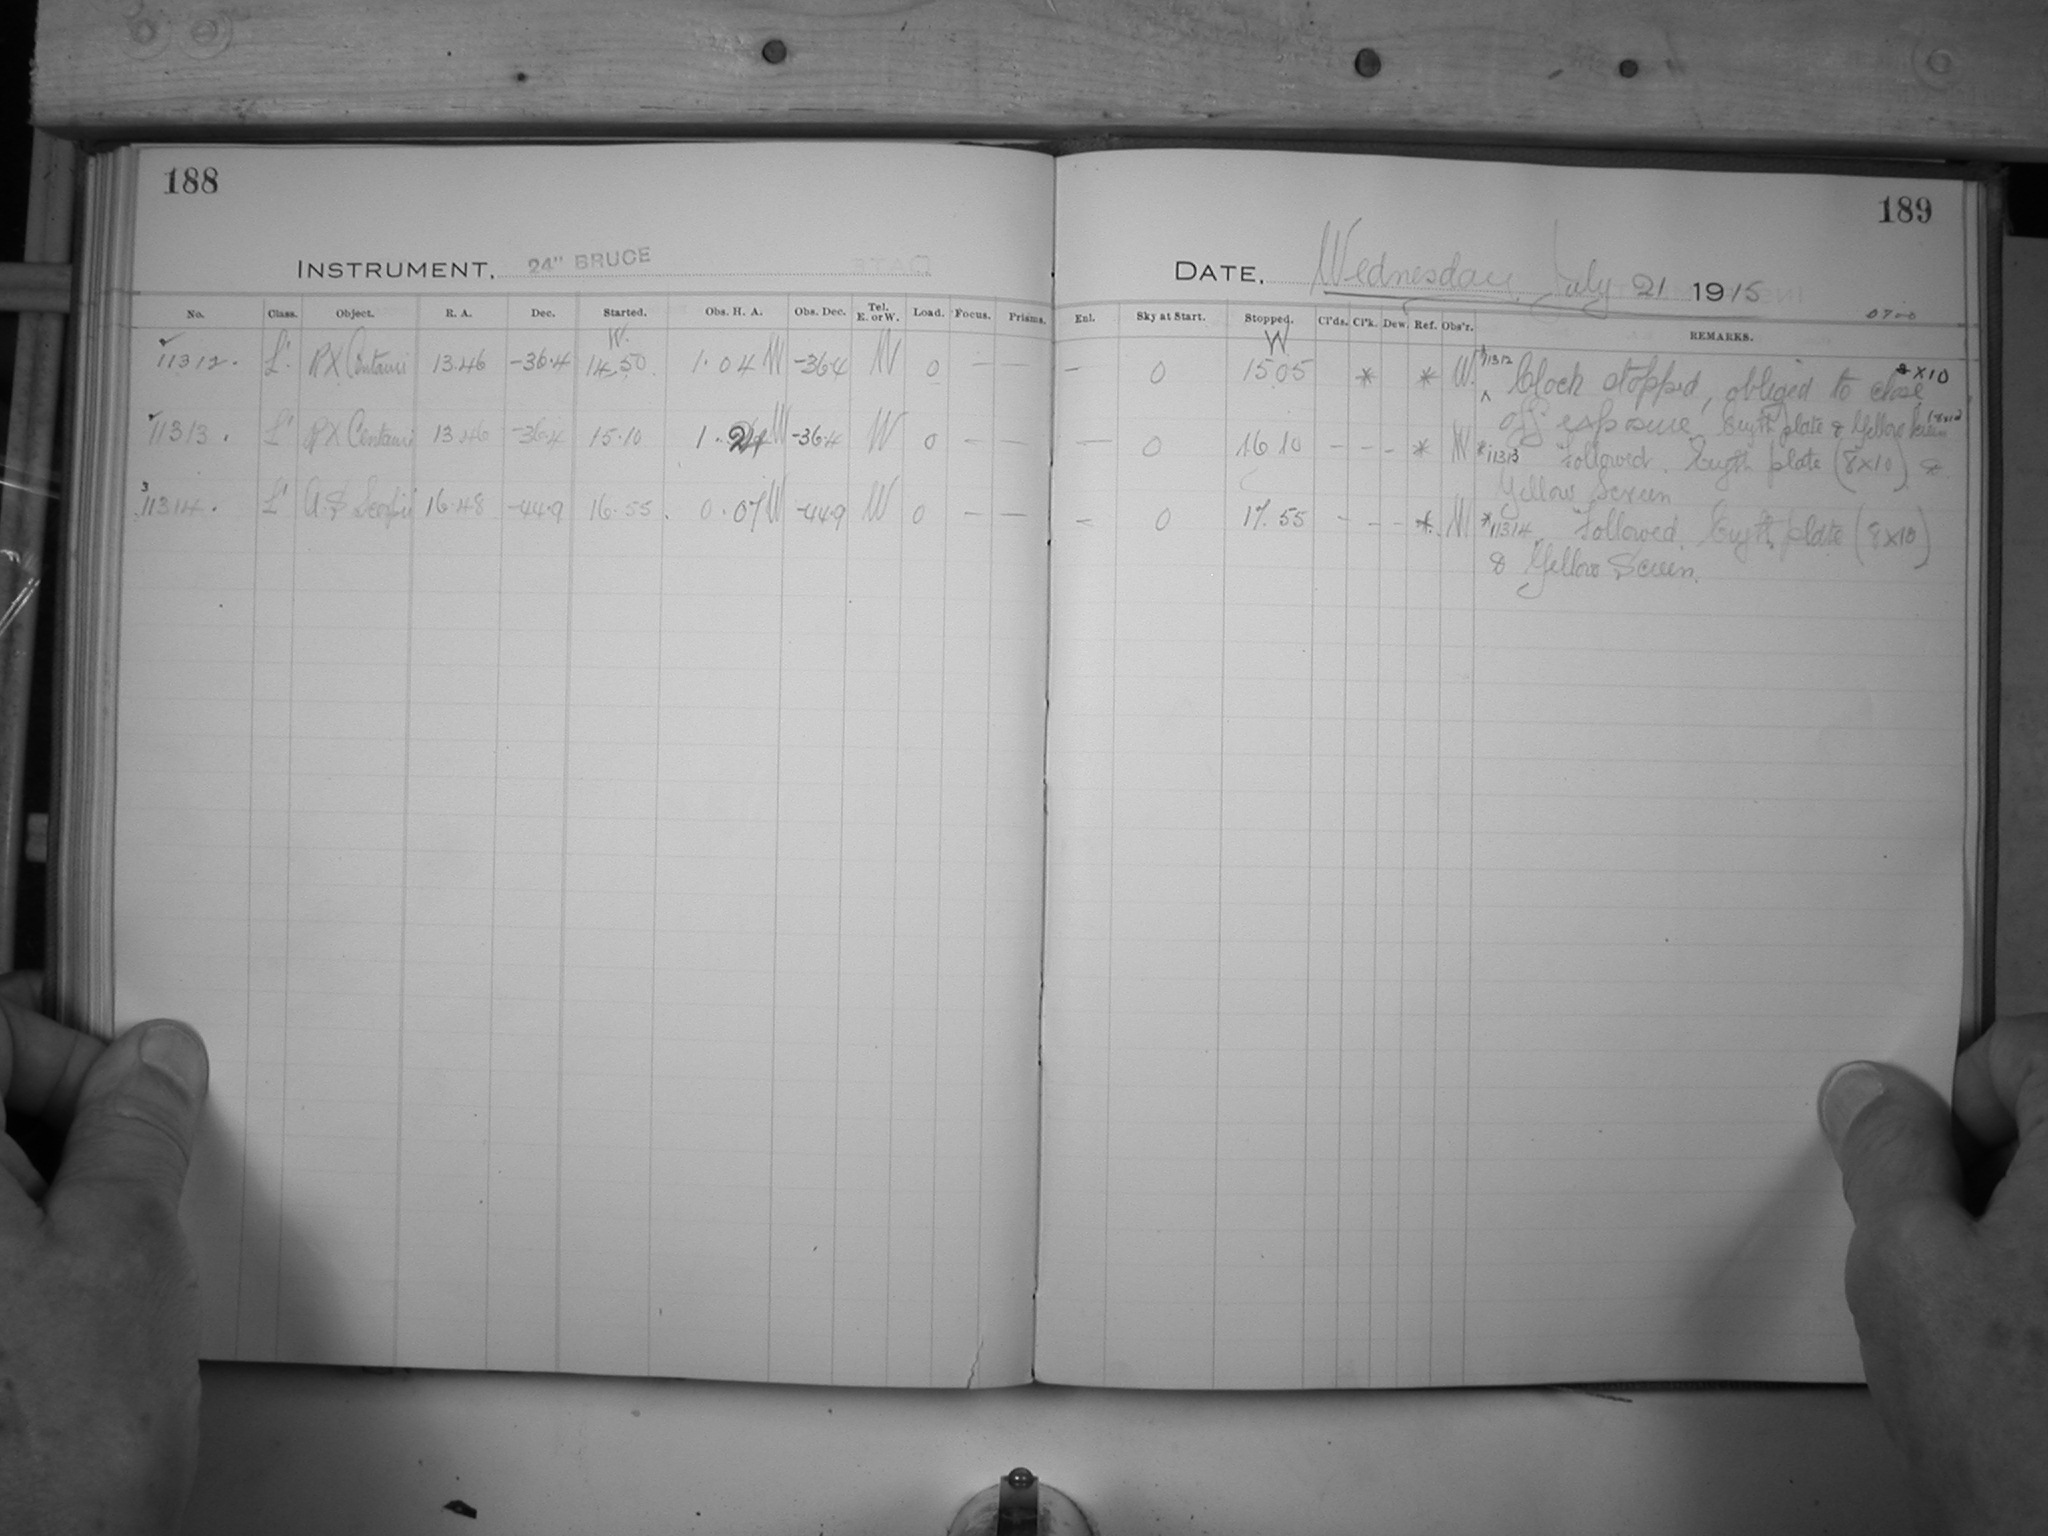 188
INSTRUMENT. 24" BRUCE
No. Class. Object. R. A. Dec. Started. Obs. H. A. Obs. Dec. Tel. E. or W. Load. Focus. Prisms.
W.
11312. L' RX Centauri 13.46 -36.4 14.50 1.04 W -36.4 W 0 — —
11313. L' RX Centauri 13.46 -36.4 15.10 1.24 W -36.4 W 0 — —
11314. L' Scorpii 16.48 -44.9 16.55 0.07 W -44.9 W 0 — —
189
DATE. Wednesday July 21 1915
Enl. Sky at Start. Stopped. Cl'ds. Cl'k. Dew. Ref. Obs'r. REMARKS.
W
— 0 15.05 * * W. 11312 Clock stopped, obliged to close 8x10
off exposure. Eryth plate & Yellow Screen
— 0 16 10 - - - * W *11313 Followed. Eryth plate (8x10) &
Yellow Screen
— 0 17.55 - - - * W *11314 Followed. Eryth plate (8x10)
& Yellow Screen.